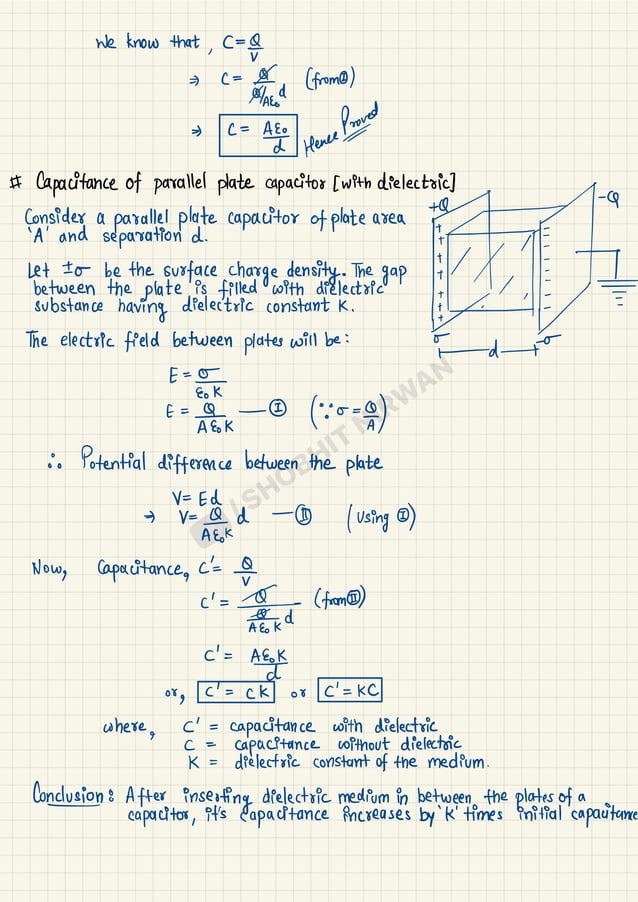 We know that, C = Q/V
⇒ C = Q/(Q/Aε₀ d) (from ①)
⇒ C = Aε₀/d Hence Proved
# Capacitance of parallel plate capacitor [with dielectric]
Consider a parallel plate capacitor of plate area
'A' and separation d.
+Q
-Q
Let ±σ be the surface charge density. The gap
between the plate is filled with dielectric
substance having dielectric constant K.
σ
-σ
d
The electric field between plates will be:
E = σ/ε₀K
E = Q/Aε₀K — Ⓘ (∵ σ = Q/A)
∴ Potential difference between the plate
V = Ed
→ V = Q/Aε₀K d — Ⓘ︎Ⓘ (Using Ⓘ)
Now, Capacitance, C' = Q/V
C' = Q/(Q/Aε₀K d) (from ⒾⒾ)
C' = Aε₀K/d
or, C' = CK or C' = KC
where, C' = capacitance with dielectric
C = capacitance without dielectric
K = dielectric constant of the medium.
Conclusion: After inserting dielectric medium in between the plates of a
capacitor, it's capacitance increases by 'K' times initial capacitance
/SHOBHIT NIRWAN